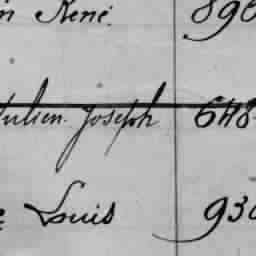 n René. 896
Julien Joseph 648
e Louis 930